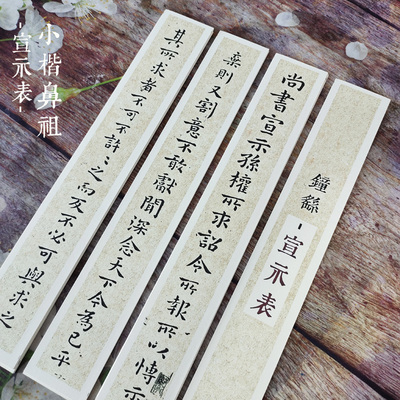 小楷鼻祖
-宣示表-
鐘繇
-宣示表-
尚書宣示孫權所求詔令所報所以博示
棄則又割意不敢獻聞深念天下今為已平
其所求者不可不許〻之而反不必可與求之